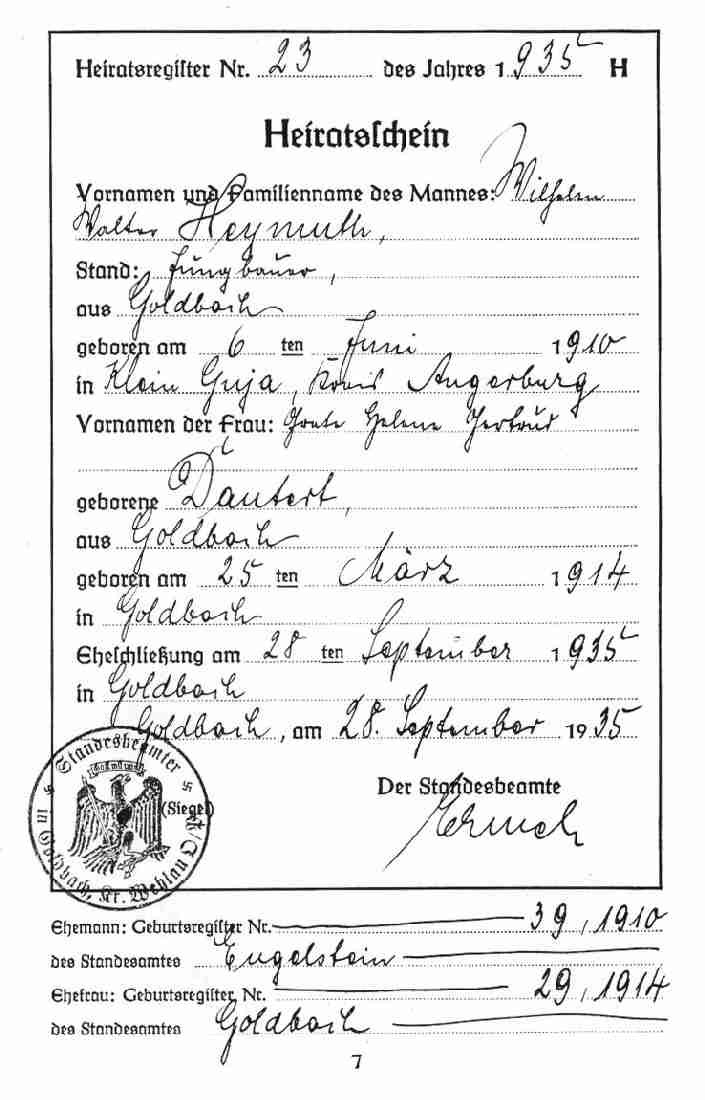 Heiratsregister Nr. 23 des Jahres 1935 H
Heiratsschein
Vornamen und Familienname des Mannes: Wilhelm
Walter Heymuth,
Stand: Jungbauer,
aus Goldbach
geboren am 6 ten Juni 1910
in Klein Guja, Kreis Angerburg
Vornamen der Frau: Grete Helene Gertrud
geborene Dautert,
aus Goldbach
geboren am 25 ten März 1914
in Goldbach
Eheschließung am 28 ten September 1935
in Goldbach
Goldbach, am 28. September 1935
Der Standesbeamte
(Siegel)
Standesbeamter
in Goldbach, Kr. Wehlau
Ehemann: Geburtsregister Nr. 39, 1910
des Standesamtes Engelstein
Ehefrau: Geburtsregister Nr. 29, 1914
des Standesamtes Goldbach
7